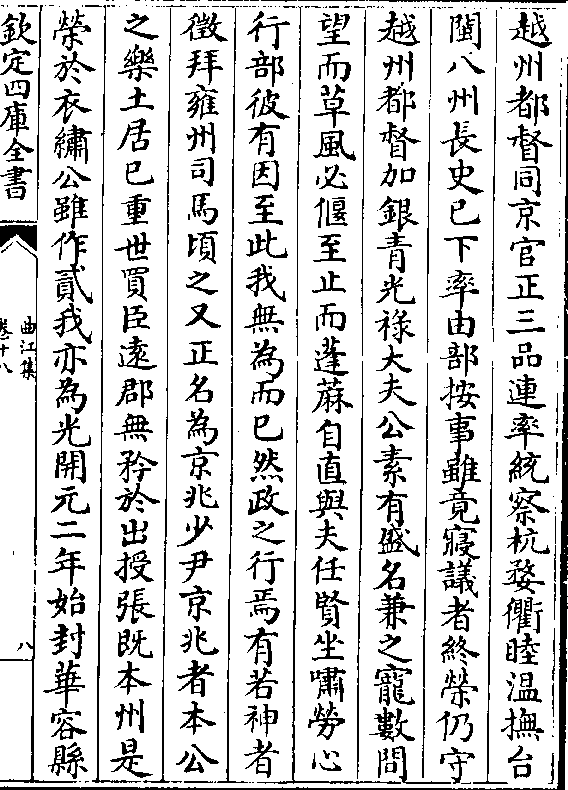 越州都督同京官正三品連率統察杭婺衢睦温撫台
閩八州長史已下率由部按事雖竟寢議者終榮仍守
越州都督加銀青光祿大夫公素有盛名兼之寵數問
望而草風必偃至止而蓬蔴自直與夫任賢坐嘯勞心
行部彼有因至此我無為而已然政之行焉有若神者
徵拜雍州司馬頃之又正名為京兆少尹京兆者本公
之樂土居已重世買臣遠郡無矜於出授張既本州是
榮於衣繡公雖作貳我亦為光開元二年始封華容縣
欽定四庫全書
曲江集
卷十八
八